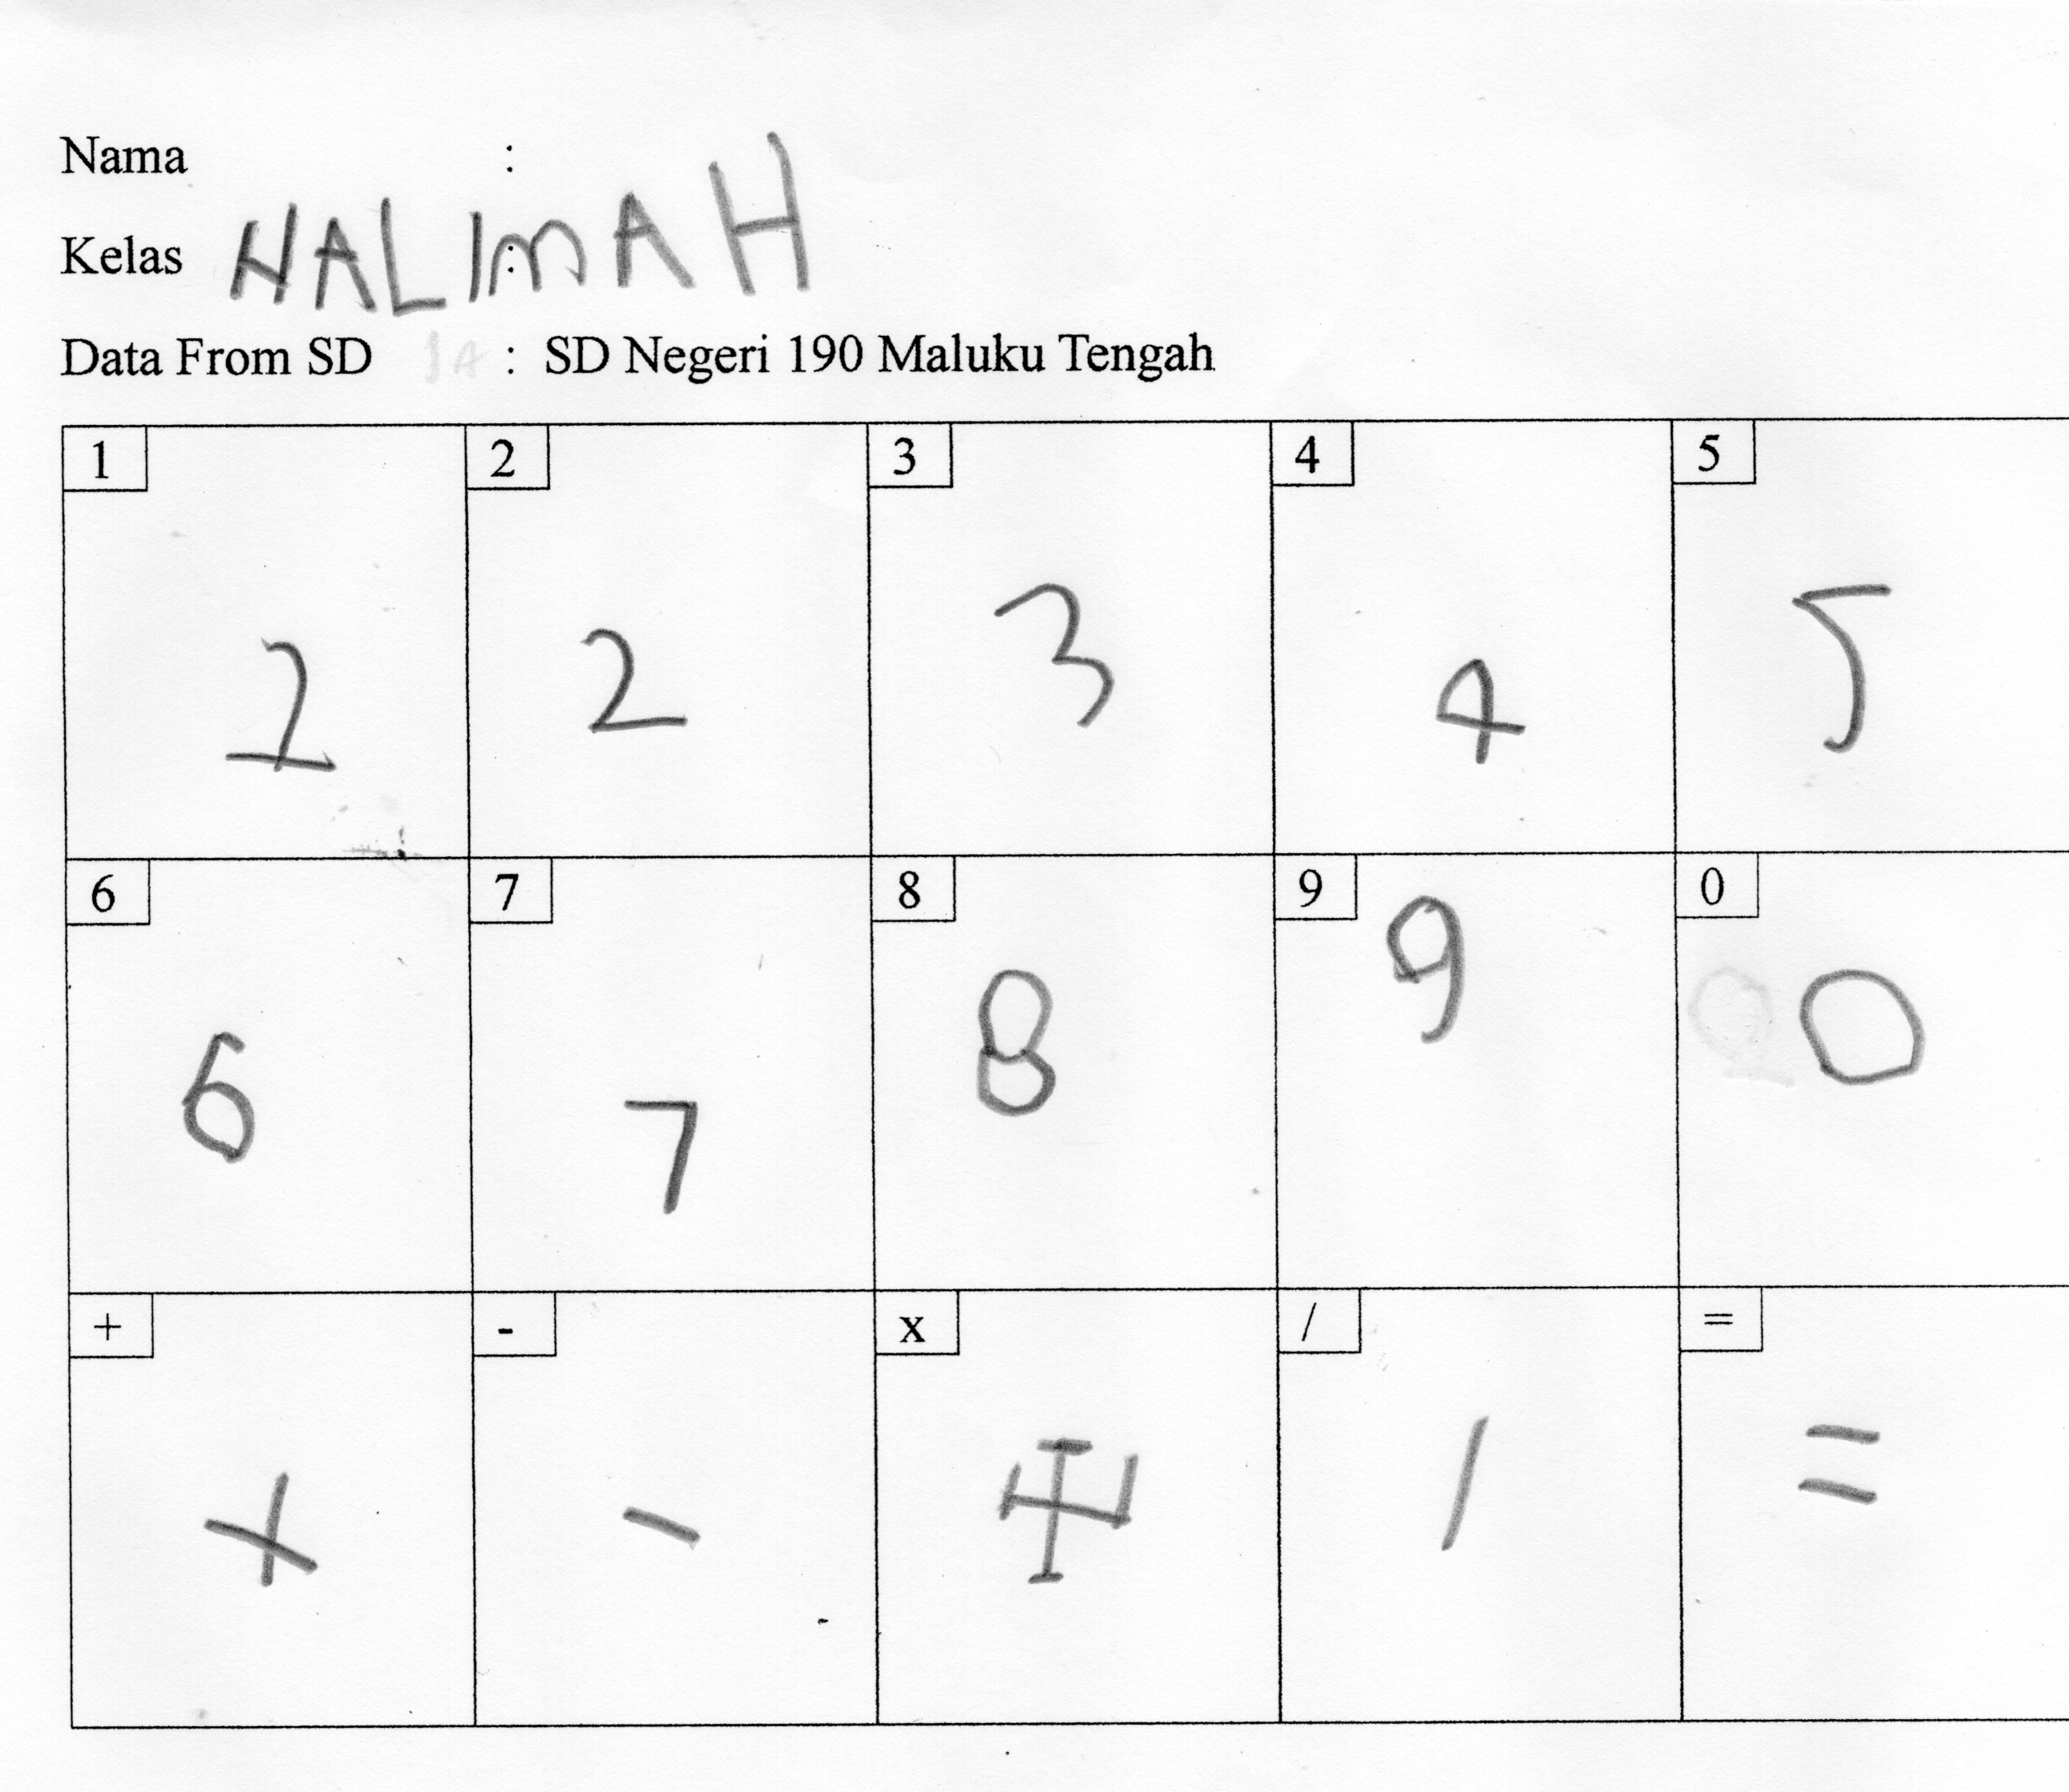 Nama :
Kelas : HALIMAH
Data From SD : SD Negeri 190 Maluku Tengah
1 2 3 4 5
1 2 3 4 5
6 7 8 9 0
6 7 8 9 0
+ - x / =
+ - / =